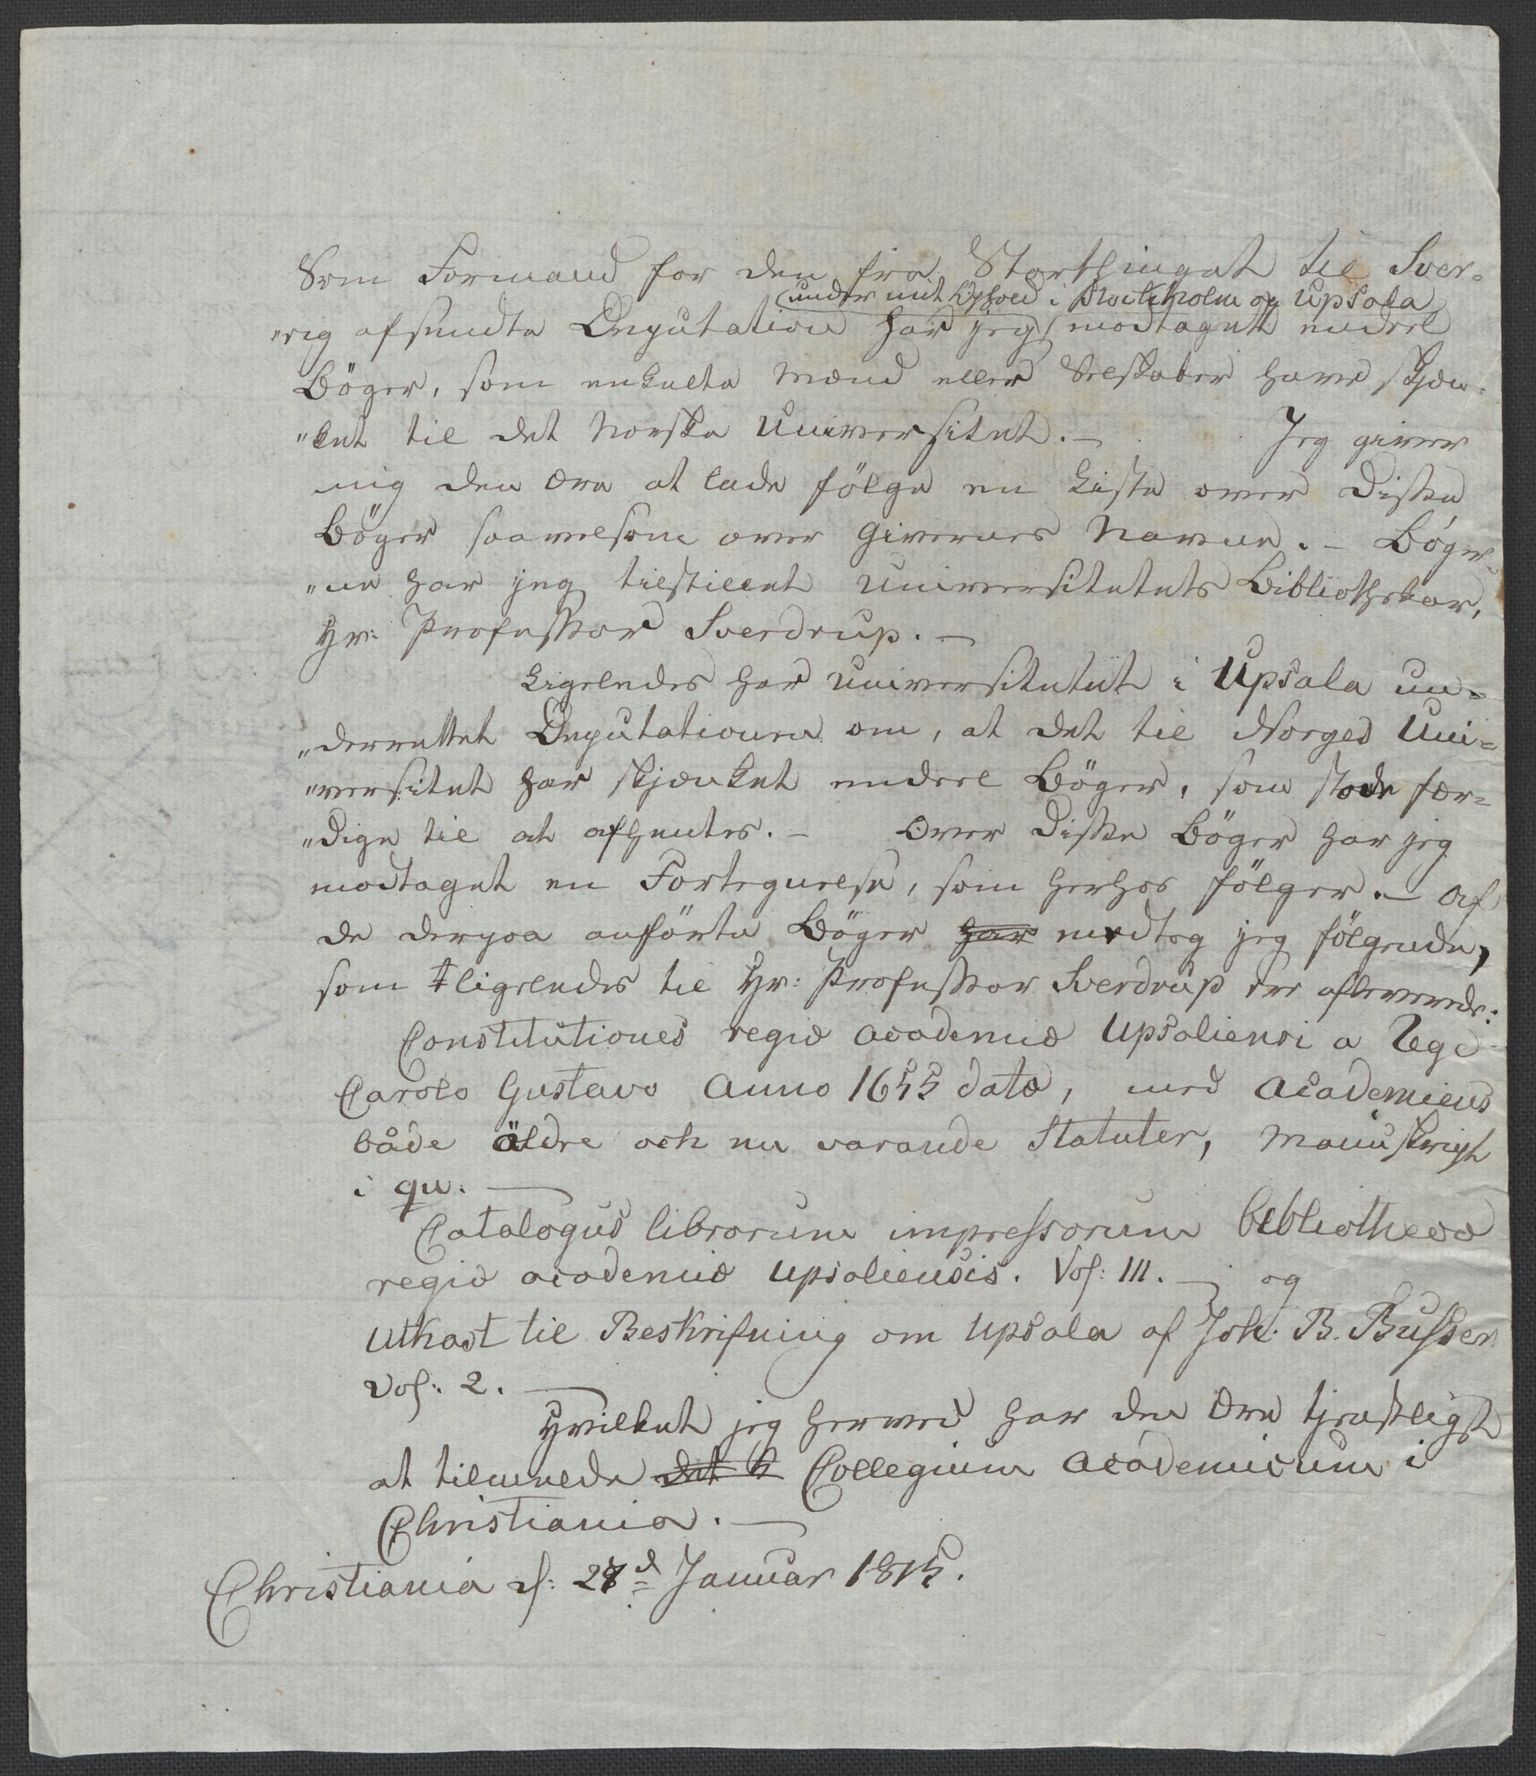 Som Formand for den fra Storthinget til Sver-
„rig afsendte Deputation har jeg, under mit Ophold i Stockholm og Upsala, modtaget endeel
Böger, som enkelte Mænd eller Selskaber have skjæn-
„ket til det Norske Universitet. — Jeg giver
mig den Ære at lade fölge en Liste over disse
Böger saavelsom over Givernes Navne. — Böger-
„ne har jeg tilstillet Universitetets Bibliothekar,
Hr: Professor Sverdrup. —
Ligeledes har Universitetet i Upsala un-
„derrettet Deputationen om, at det til Norges Uni-
„versitet har skjænket endeel Böger, som stode fær-
„dige til at afhentes. — Over disse Böger har jeg
modtaget en Fortegnelse, som herhos fölger. — Af
de derpaa anförte Böger har medtog jeg fölgende,
som ligeledes til Hr: Professor Sverdrup ere afleverede:
Constitutiones regiæ academiæ Upsaliensi a Rege
Carolo Gustavo Anno 1655 datæ, med Academiens
både äldre och nu varande Statuter, Manuskript
i qu. —
Catalogus librorum impressorum bibliothecæ
regiæ academiæ Upsaliensis. Vol: III. — og
Utkast til Beskrifning om Upsala af Joh. B. Busser
Vol: 2. —
Hvilket jeg herved har den Ære tjenstligst
at tilmelde det h Collegium academicum i
Christiania. —
Christiania d: 28d Januar 1815.